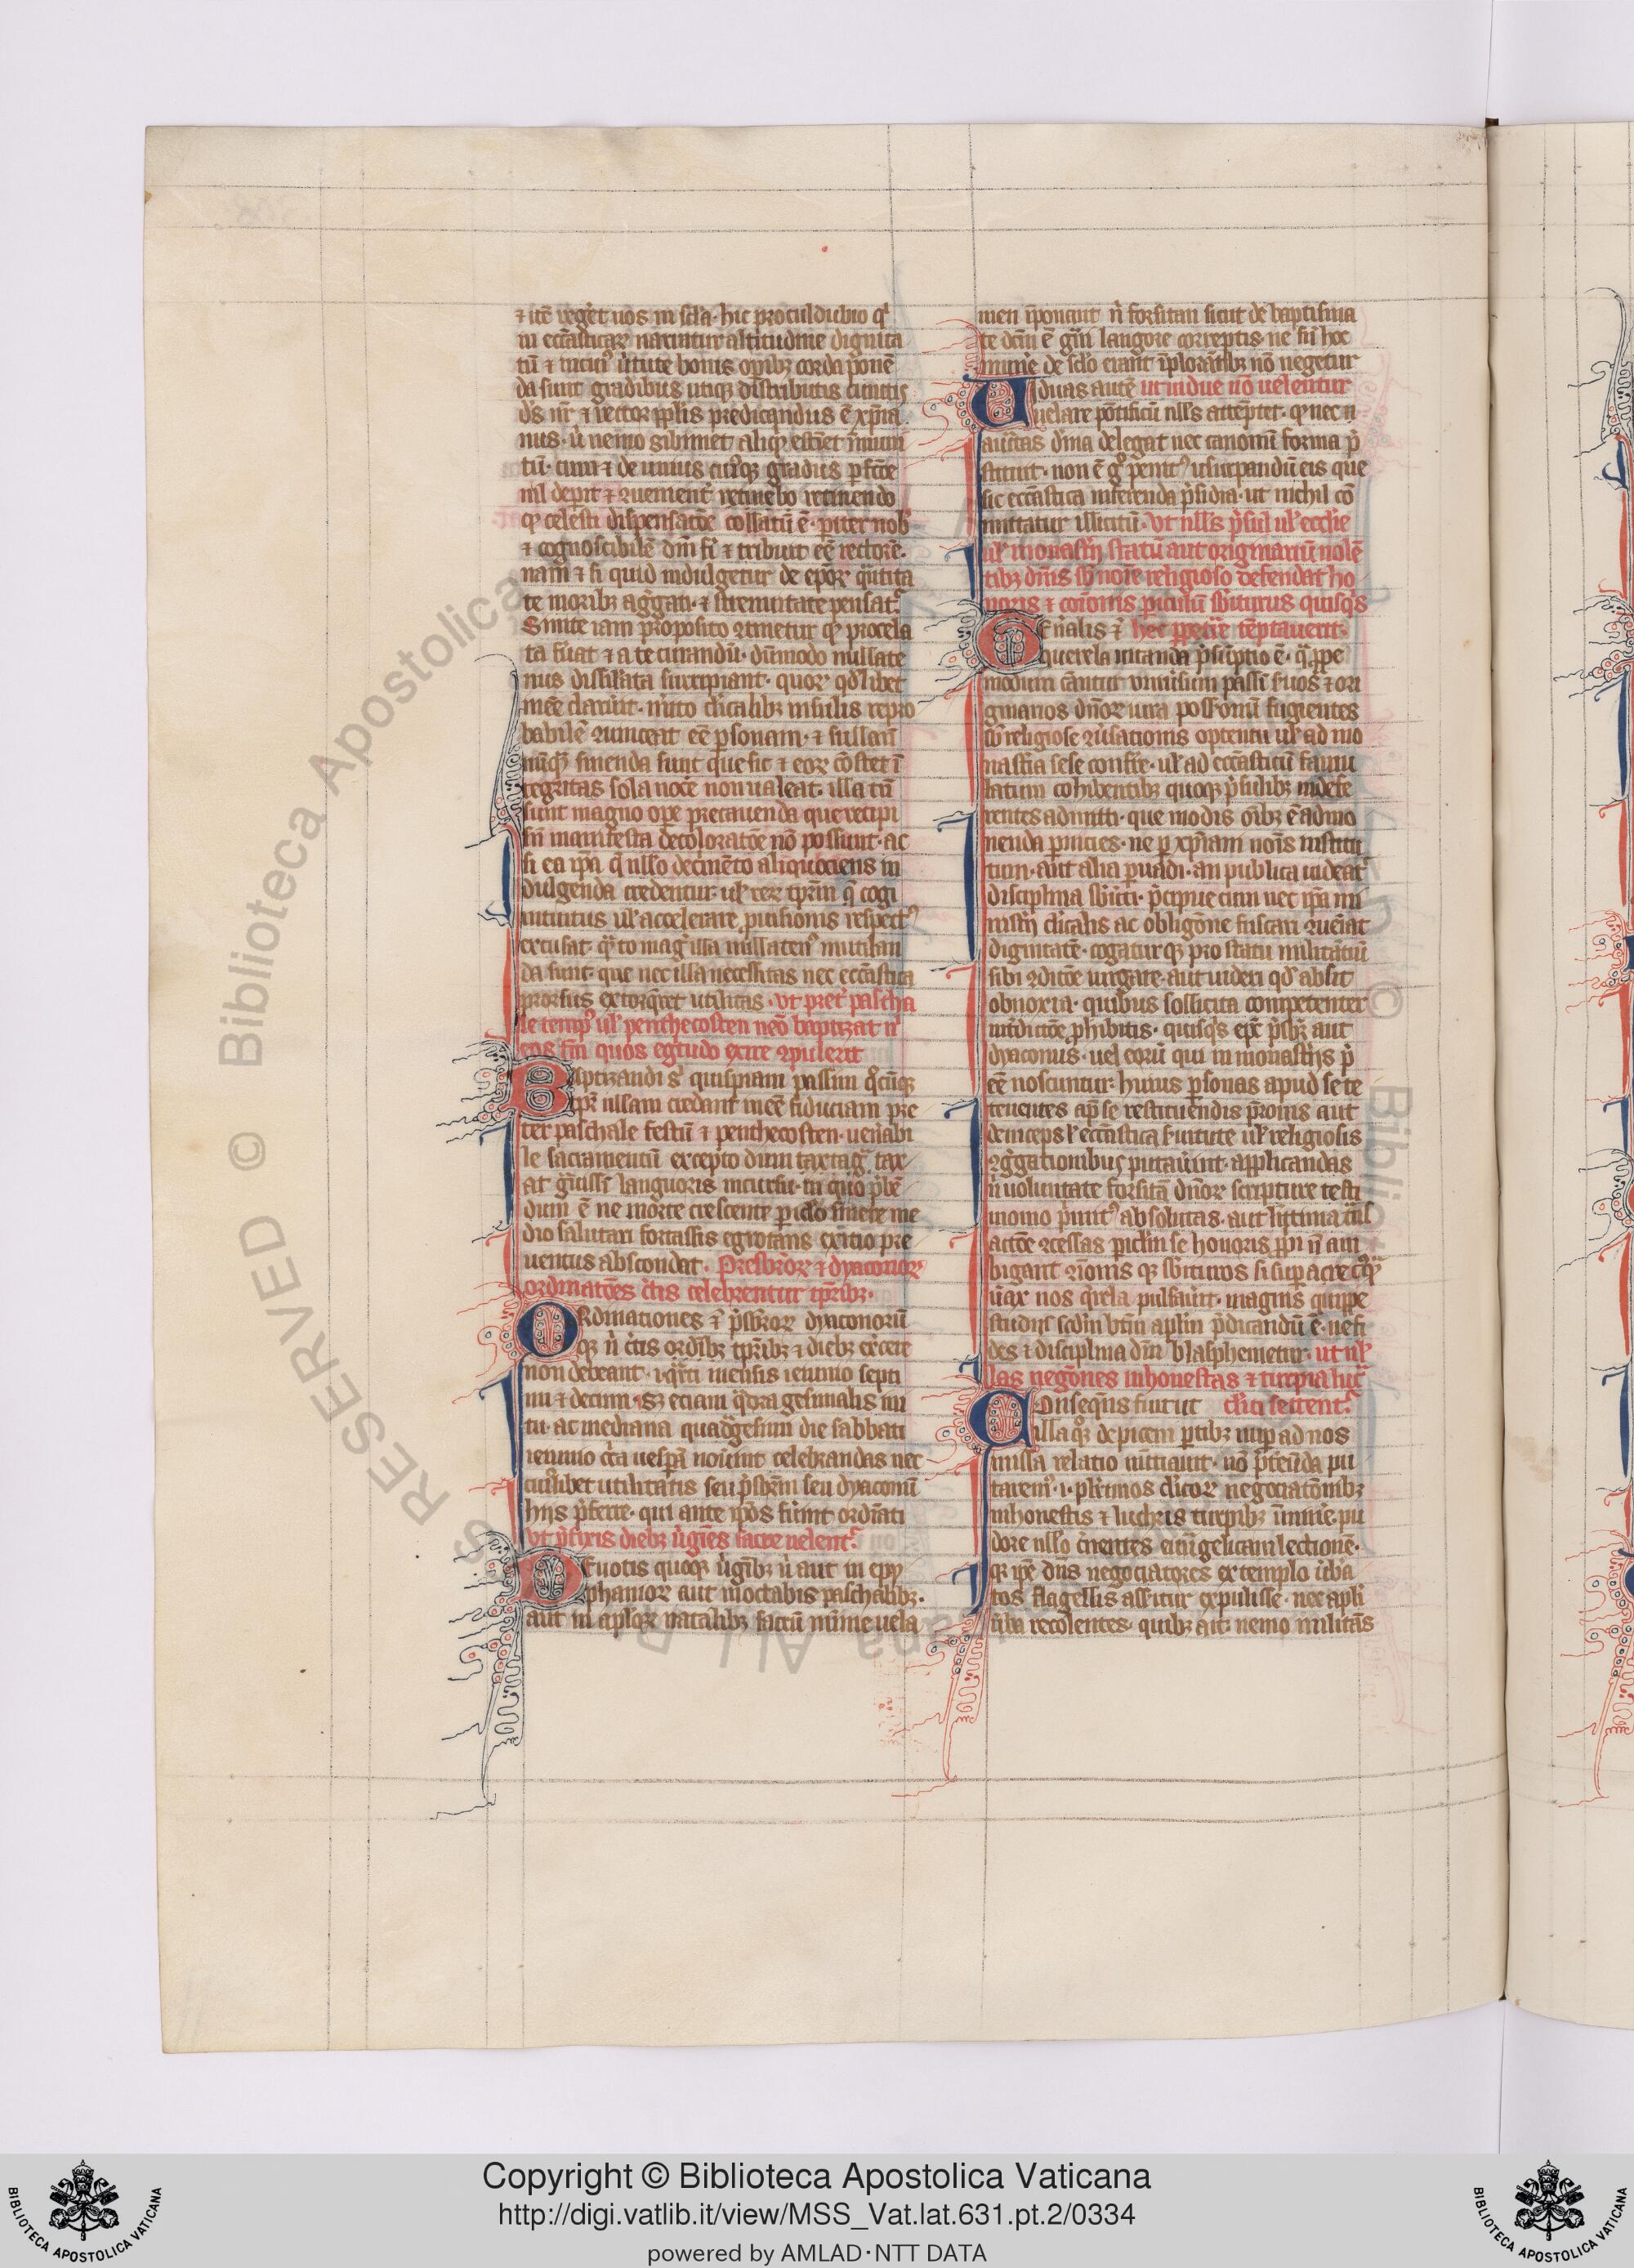 ⁊ itē reget uos in scla. hic proculdubio q̇
in ecclāsticaꝝ narratur altitudine dignita
tū ⁊ tuciꝰ ītute bonis opibꝫ corda ponē
da sunt gradibus utiqꝫ distributis cunctis
ds nr̄ ⁊ rector ipsis predicandus ē xp̄ia
nus. ù nemo sibimet aliqꝫ estīet īminui
tū. cum ⁊ de unius cuiꝰqꝫ gradus pfc̄oe
nil depit ⁊
qꝫ celesti dispensatōe collatū ē. pariter nob
⁊ cognoscibilē dn̄i fi ⁊ tribuit eē rectorē.
nam ⁊ si quid indulgetur de epoꝝ qͣntita
te moribꝫ aggatᷣ. ⁊ strenuitate pensatᷣ
Sinite iam proposito ꝯtinetur qꝫ procela
ta fuat ⁊ a te curandū. dūmodo nullate
nus dissilata suscipiant. quoꝝ qd̓libet
meē claruit. mīto cl̓icalibꝫ insulis repro
babilē ꝯuincerit eē psonam. ⁊
nūqꝫ sinenda sunt que sic ⁊ eoꝝ cōstet ī
tegritas sola noc̄e non ualeat. illa tn̄
sunt magno ope precauenda que recipi
sn̄ manifesta decoloratōe nō possunt. ac
si ea ipā q̄ nullo detrimēto aliquociens in
dulgenda credentur. ul̓ reꝝ tpr̄m q̄ cogi
intuitus ul̓ accelerate prouisionis respectꝰ
excusat. qͣto magͥ illa nullatenꝰ mutilan
da sunt. que nec illa necessitas nec ecclāstica
prorsus extorqret utilitas. Vt pret̓ pascha
le tempꝰ ul̓ penthecosten neō baptizat n̓
eos sn̄ quos egtudo exire ꝯpulerit
Baptizandi sͥ quispiam passim qͦcūqꝫ
tpr̄ ullam credant ineē fiduciam pre
ter paschale festū ⁊ penthecosten. uen̓abi
le sacramentū excepto dum taxtagᷓ. tax
at gͣuissī languoris incursu. in quo p̓bē
dum ē ne morte crescente pic̄lo sine reme
dio salutari fortassis egrotans exitio pre
uentus abscondat. Presbr̓oꝝ ⁊ dyaconoꝝ
ordinatōes c̓tis celebrentur tpr̄ibꝫ.
Ordinationes ē p̓sbroꝝ dyaconorū
qꝫ n̓ c̓tis ordībꝫ tpr̄ibꝫ ⁊ diebꝫ ex̓cere
non debeant. i. qͣrti mensis ieiunio septi
mi ⁊ decimi. sꝫ etiam qͣdragesimalis ini
tii. ac mediana quadgesim̄ die sabbati
ieiunio c̓ca uesp̄a nouīnt celebrandas nec
cuiꝰlibet utilitatis seu p̓sbrm̄ seu dyaconū
hiis p̓ferre. qui ante ipōs fuīnt ordīati
Vt p̓fixis diebꝫ u̓gines sacre uelentᷣ.
Deuotis quoqꝫ u̓gibꝫ n̓ aut in epy
phanioꝝ aut in octabis paschalibꝫ.
aut in apl̓oꝝ natalibꝫ sacrū minīe uela
men īponant n̓ forsitan sicut de baptisma
te dcm̄ ē gͣui langore correptis. ne sn̄ hoc
mun̓e de sclo exeant īplorantibꝫ nō negetur
Uiduas autē ut uidue nō uelentur
uelare pōtificū nllūs attēptet. qꝫ nec a
uc̄tas diīna delegat nec canonū forma p̓
stituit. non ē gͦ penitꝰ usurpandū eis que
sic ecclāstica inferenda p̓sidia. ut nichil cō
mittatur illicitū. Vt nlls p̓sul ul̓ ecclīe
ul̓ monast̓ii statū aut originariū nolē
tibꝫ dn̄is sb̓ noīe religioso defendat ho
noris ⁊ com̄onis piculū sb̓iturus quisqͥs
Gen̓alis ē hec ppere tēptauerit.
querela uitanda p̓sūptio ē. qͣ ppe
modum cāntur uniu̓sum passī suos ⁊ ori
ginarios dn̄oꝝ iura possonū fugientes
sb̓ religiose ꝯu̓sationis optentu ul̓ ad mo
nast̓ia sese conferre. ul̓ ad ecclāsticū famu
latum cohibentibꝫ quoqꝫ p̓sulibꝫ indefe
rentes admitti. que modis oībꝫ ē admo
uenda pnicies. ne p xp̄iani nois institu
tum. aut alia puadi. an publica uideat
disciplina sb̓ici. p̓cipue cum nec ipā mi
nist̓ii cl̓icalis ac obligōne fuscari ꝯueniat
dignitatē. cogatur qꝫ pro statu militātiū
sibi ꝯdic̄oe iurgare. aut uideri qd̓ absit
obnoxia. quibus sollicita competenter
int̓dictōe phibitis. quisqͥs epc̄ p̓sbr̄ aut
dyaconus. uel eorū qui in monast̓iis p̓
eē noscuntur. huius psonas apud se te
tenentes ap̄ se restituendis pronis aut
deinceps ul̓ ecclāstica s̓uitute ul̓ religiosis
ꝯggationibus putauīnt applicandas
n̓ uoluntate forsitā dn̄oꝝ scripture testi
monio p̓mitꝰ absolutas. aut l̓ittima tn̄s
actōe ꝯcessas. piclm̄ se honoris ppi n̄ am
bigant ꝯmois qꝫ sb̓ituros si sup ac re
u̓ax nos qͥrela pulsauīt. magnis quippe
studiis scdm̄ btm̄ aplm̄ p̓dicandū ē. ne fi
des ⁊ disciplina dn̄i blasphemetur. ut ul̓
las negōnes inhonestas ⁊ turpia luc̄
Conseqn̄s fuit ut cl̓ici sectentᷣ.
illa qͦqꝫ de picem ptibꝫ nup ad nos
missa relatio nūtiauit. nō p̓t̓eunda pu
taremꝰ. i. pl̓imos cl̓icoꝝ negociatōnibꝫ
inhonestis ⁊ lucris turpibꝫ iminīe. pu
dore nllo c̓nentes euāgelicam lectionē.
qꝫ ipē dn̄s negociatores ex templo u̓ba
tos flagellis asseritur expulisse. nec apl̓i
u̓ba recolentes. quibꝫ ait. nemo militās
Copyright © Biblioteca Apostolica Vaticana
http://digi.vatlib.it/view/MSS_Vat.lat.631.pt.2/0334
powered by AMLAD·NTT DATA